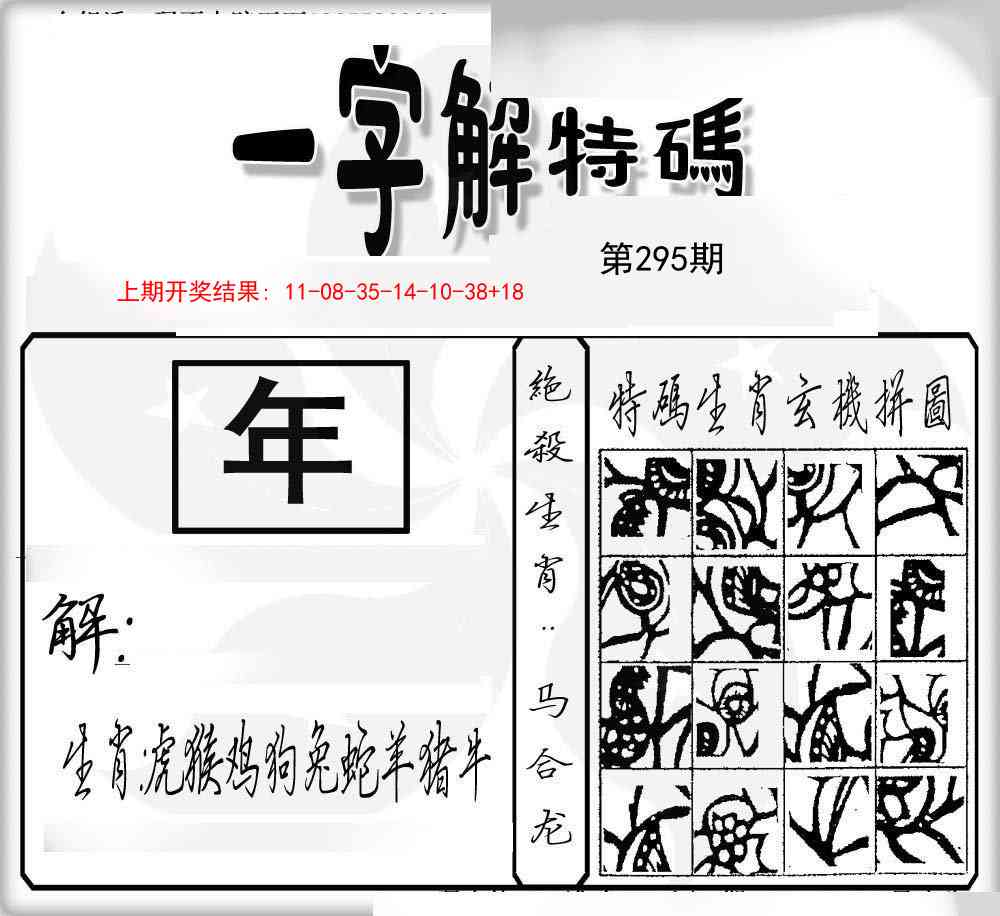 一字解特碼
第295期
上期开奖结果: 11-08-35-14-10-38+18
年
解:
生肖:虎猴鸡狗兔蛇羊猪牛
絶殺生肖:马合龙
特碼生肖玄機拼圖